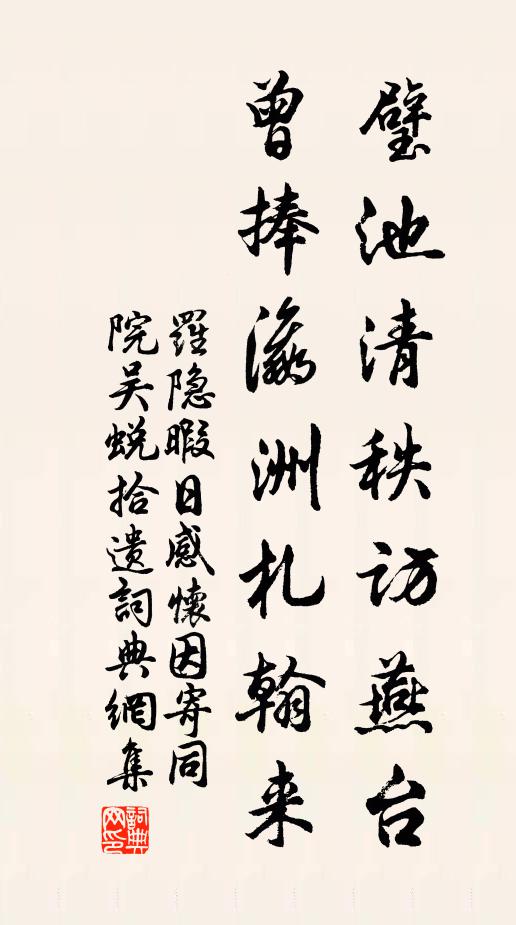 璧池清秩访燕台
曾捧瀛洲札翰来
羅隐暇日感懷因寄同
院吴蜕拾遺詞典網集
詞典
网印